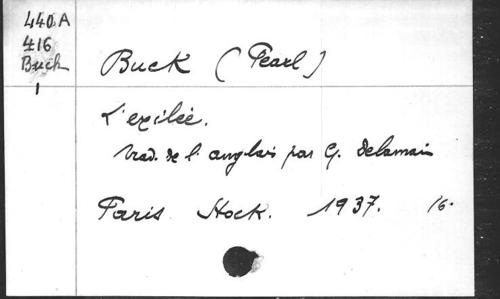 440.A
416
Buck
1
Buck (Pearl)
L'exilée.
trad. de l'anglais par G. Delamain
Paris Stock. 1937. 16.